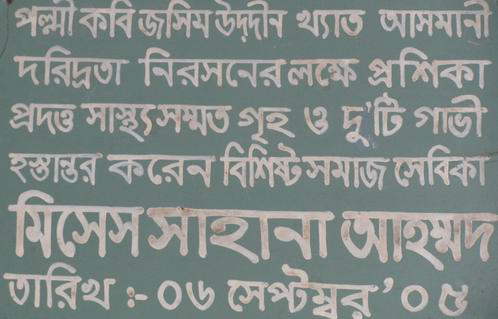 পল্লী কবি জসিম উদ্দীন খ্যাত আসমানী
দরিদ্রতা নিরসনের লক্ষে প্রশিকা
প্রদত্ত সাস্থ্য সম্মত গৃহ ও দু'টি গাভী
হস্তান্তর করেন বিশিষ্ট সমাজ সেবিকা
মিসেস সাহানা আহম্মদ
তারিখ ঃ- ০৬ সেপ্টম্বর '০৫